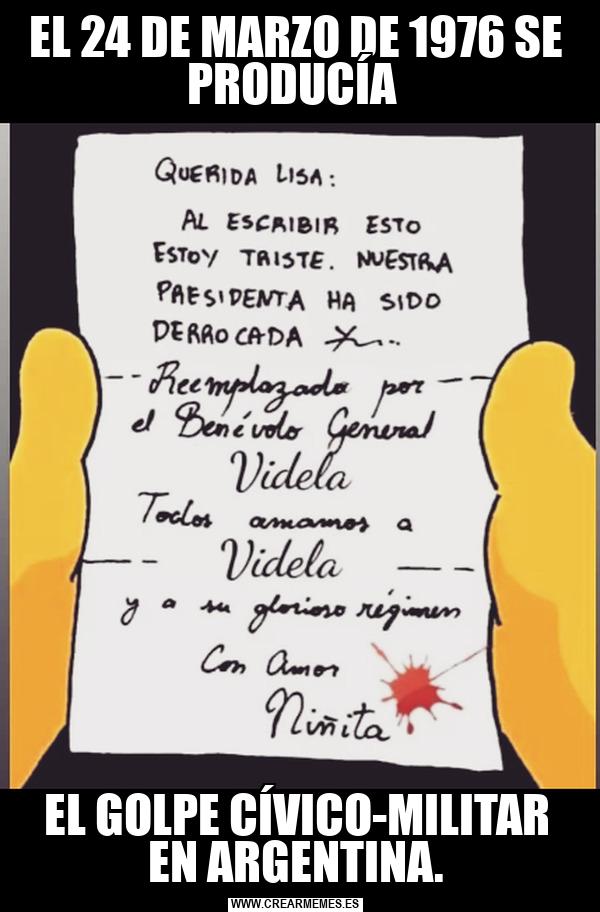 EL 24 DE MARZO DE 1976 SE
PRODUCÍA
QUERIDA LISA:
AL ESCRIBIR ESTO
ESTOY TRISTE. NUESTRA
PRESIDENTA HA SIDO
DERROCADA
-- Reemplazada por --
el Benévolo General
Videla
Todos amamos a
Videla
y a su glorioso régimen
Con Amor
Niñita
EL GOLPE CÍVICO-MILITAR
EN ARGENTINA.
WWW.CREARMEMES.ES